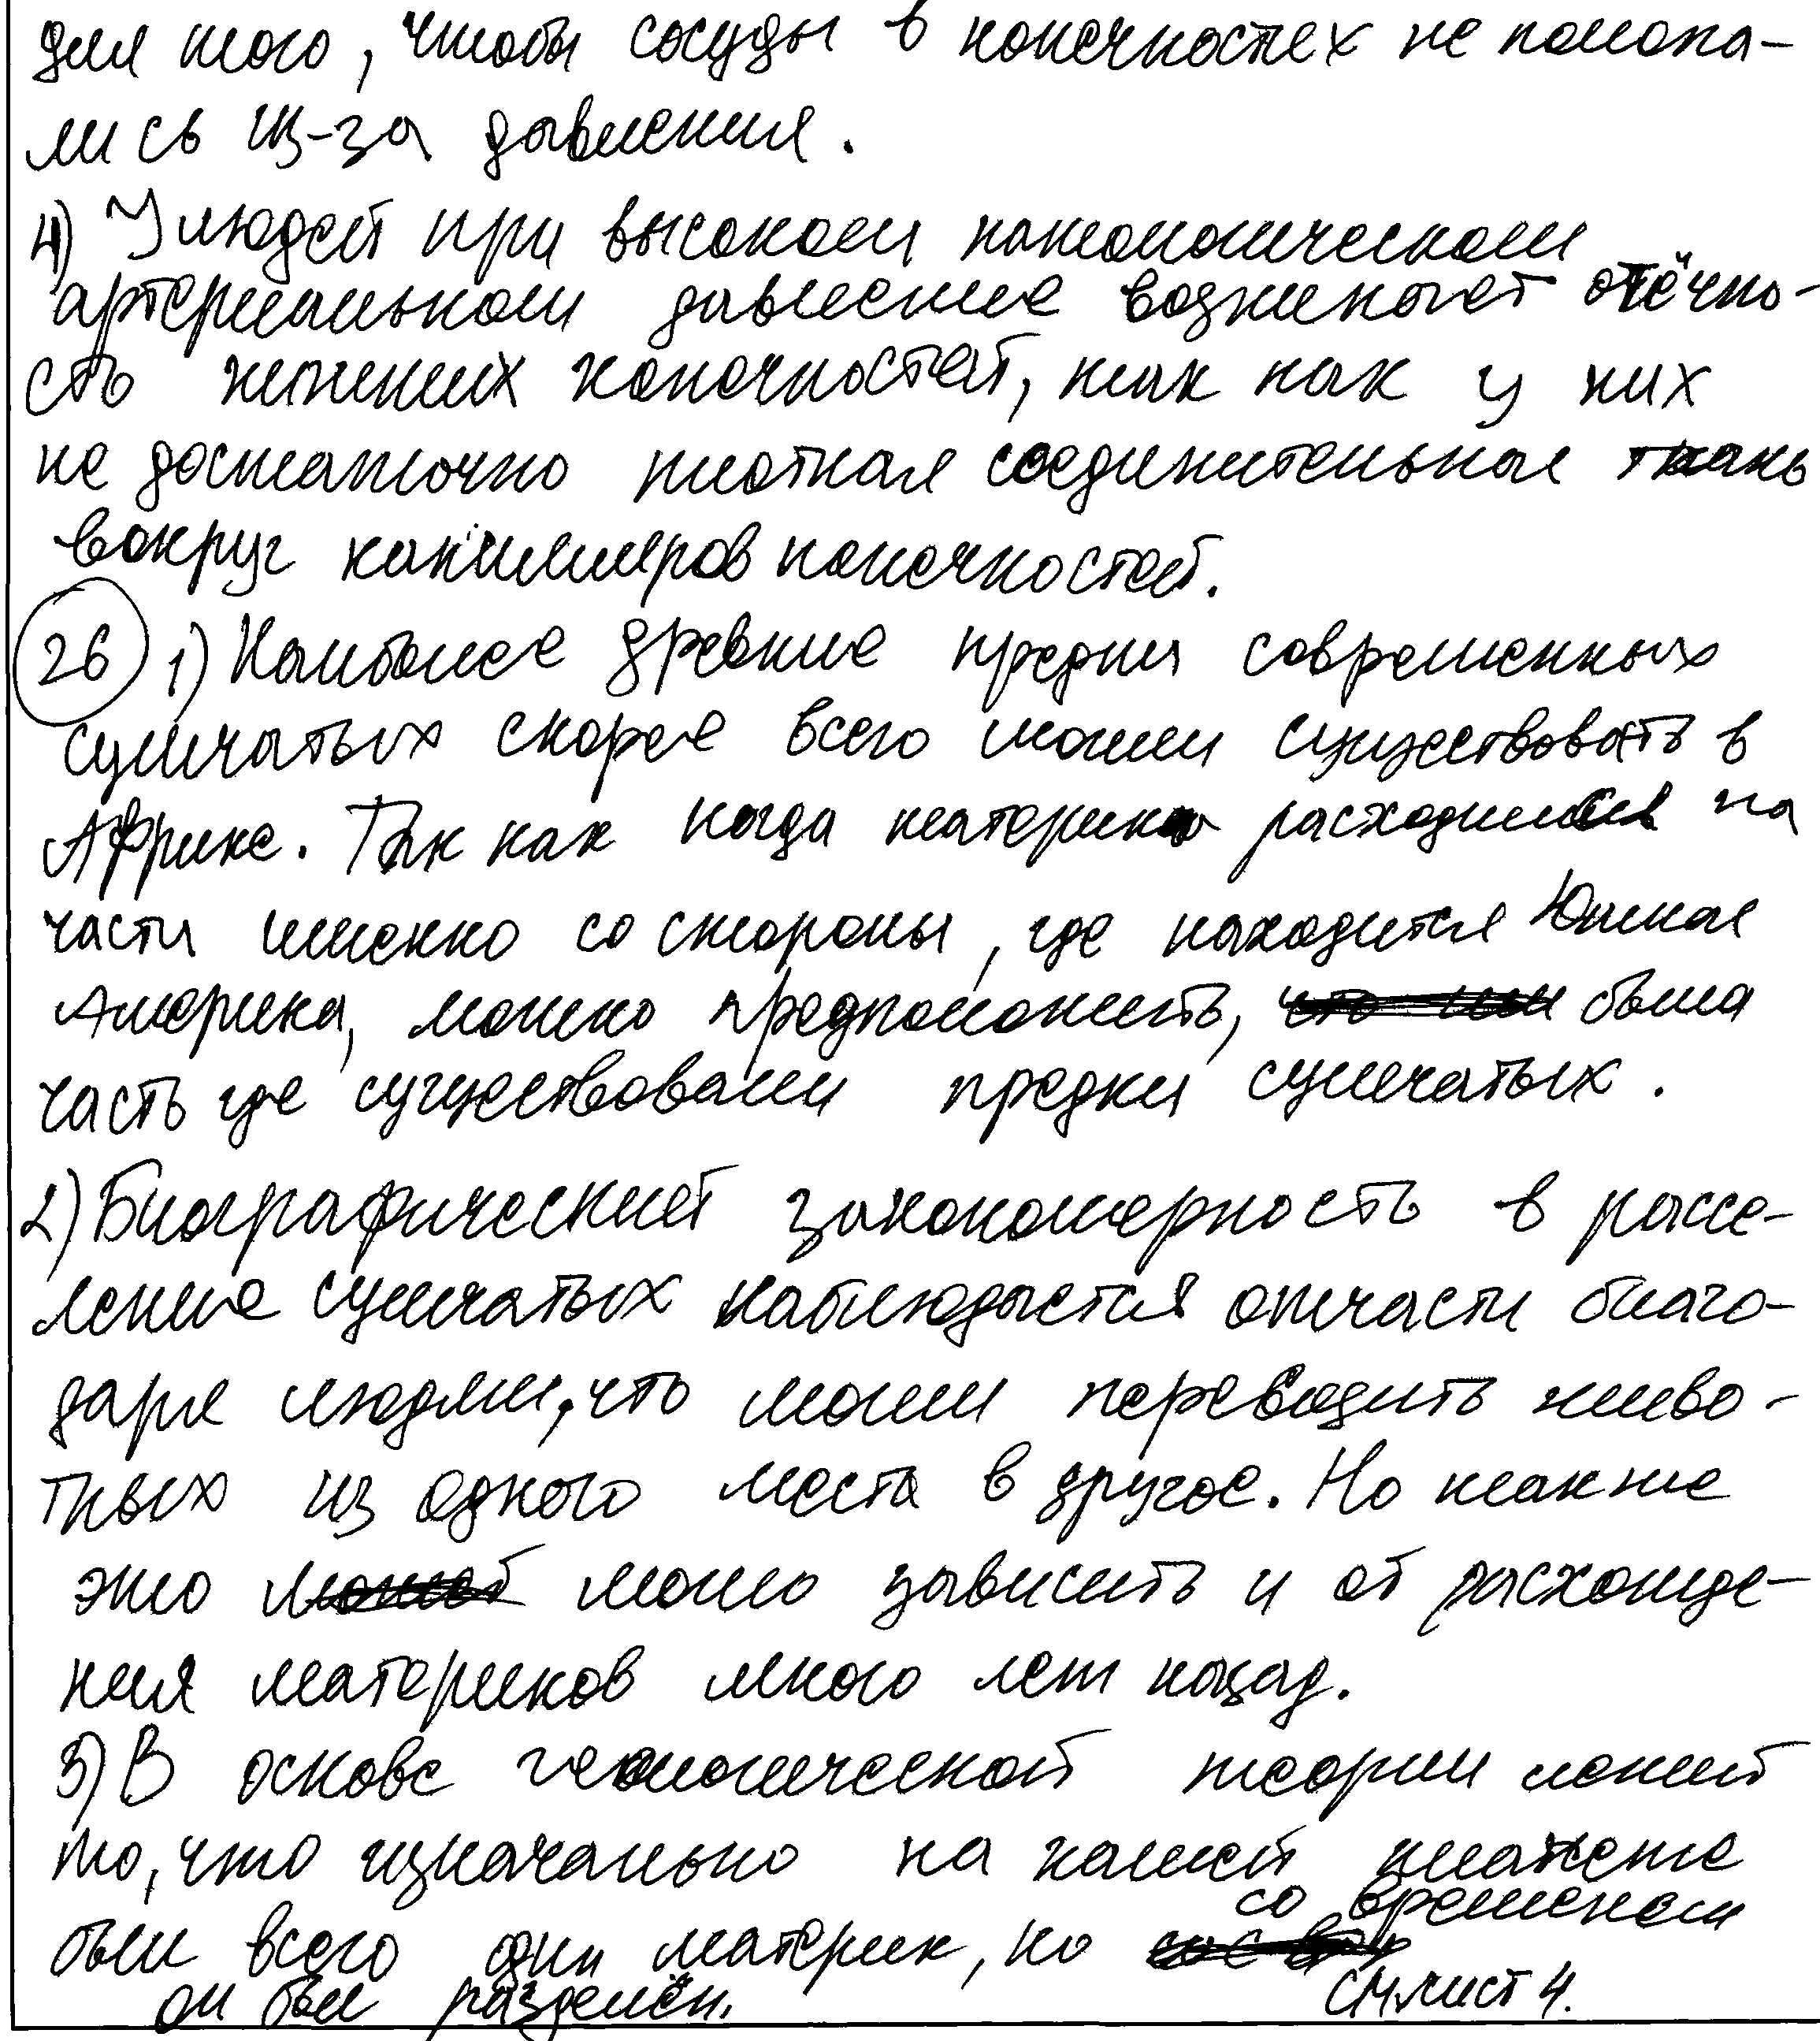 для того, чтобы сосуды в конечностях не полопа-
лись из-за давления.
4) У людей при высоком патологическом
артериальном давление возникает отёчно-
сть нижних конечностей, так как у них
не достаточно плотная соединительная ткань
вокруг капилляров конечностей.
26 1) Наиболее древние предки современных
сумчатых скорее всего могли существовать в
Африке. Так как когда материки расходились на
части именно со стороны, где находится Южная
Америка, можно предположить, была
часть где существовали предки сумчатых.
2) Биографический закономерность в рассе-
ление сумчатых наблюдается отчасти благо-
даря людям, что могли перевозить живо-
тных из одного места в другое. Но также
это могло зависить и от расхожде-
ния материков много лет назад.
3) В основе геологической теории лежит
то, что изначально на нашей планете
был всего один материк, но со временем
он был разделён.
см. лист 4.